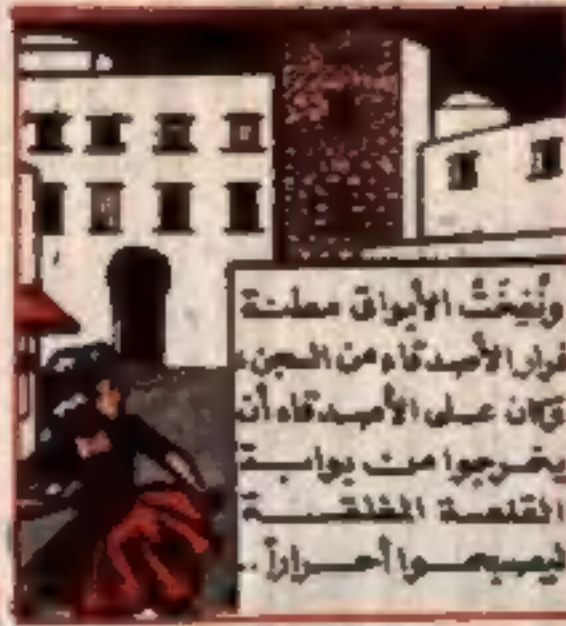 ونُفِخَتْ الأبواق معلنة
فرار الأصدقاء من السجن،
وكان على الأصدقاء أن
يخرجوا من بوابة
القلعة المغلقة
ليصبحوا أحراراً..